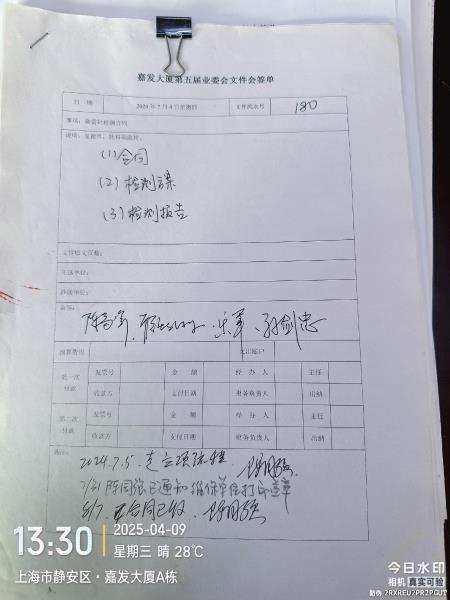 嘉发大厦第五届业委会文件会签单
日 期 2024年7月4日星期四 文件流水号 180
事项：避雷针检测合约
(1)合同
(2)检测方案
(3)检测报告
主送单位：
抄送单位：
会签：
孙剑忠
预算费用 支出账户
第一次付款 发票号 金 额 经 办 人 主任
收款方 支付日期 财务负责人 出纳
第二次付款 发票号 金 额 经 办 人 主任
收款方 支付日期 财务负责人 出纳
备注：
2024.7.5. 走立项流程.
7/31 陈国强已通知维保单位打印盖章
8/7. 合同已收.
13:30 2025-04-09
星期三 晴 28℃
上海市静安区·嘉发大厦A栋
今日水印
相机 真实可验
防伪 2RXREU2PR2PGUT